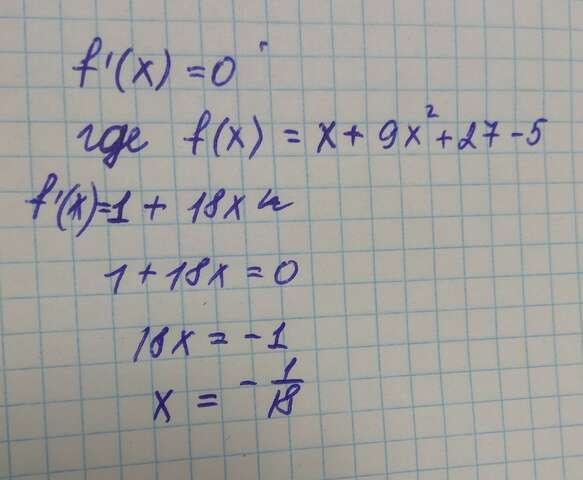 f'(x) = 0
где f(x) = x + 9x² + 27 - 5
f'(x) = 1 + 18x
1 + 18x = 0
18x = -1
x = - 1/18